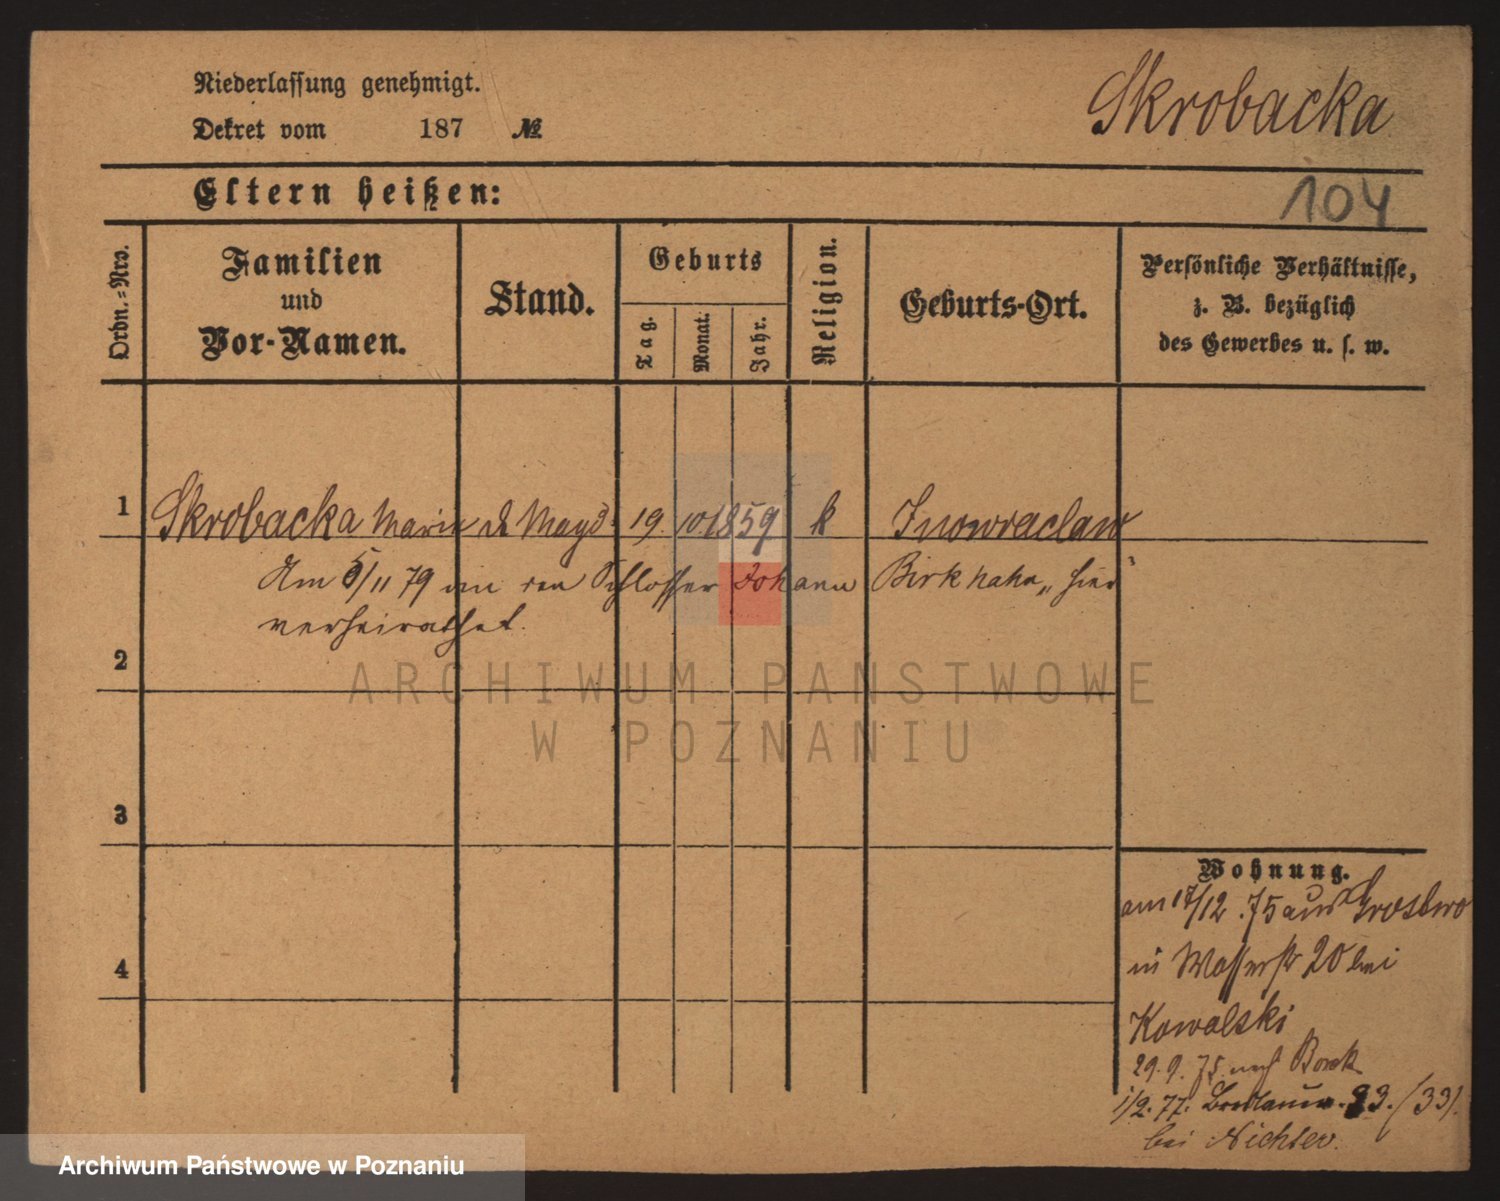 Niederlassung genehmigt.
Dekret vom 187 №
Skrobacka
Eltern heißen:
104
Ordn.-Nro.
Familien
und
Vor-Namen.
Stand.
Geburts
Tag.
Monat.
Jahr.
Religion.
Geburts-Ort.
Persönliche Verhältnisse,
z. B. bezüglich
des Gewerbes u. s. w.
1 Skrobacka Marie d Magd 19. 10. 1859 k Inowraclaw
Am 5/11 79 an den Schlosser Johann Birkhahn hier
verheirathet.
2
ARCHIWUM PAŃSTWOWE
W POZNANIU
3
Wohnung.
am 17/12. 75 aus
4
in Wasserstr 20 bei
Kowalski
29. 9. 75 nach Borek
1/2. 77. Breslauer. 33. (33).
bei
Archiwum Państwowe w Poznaniu